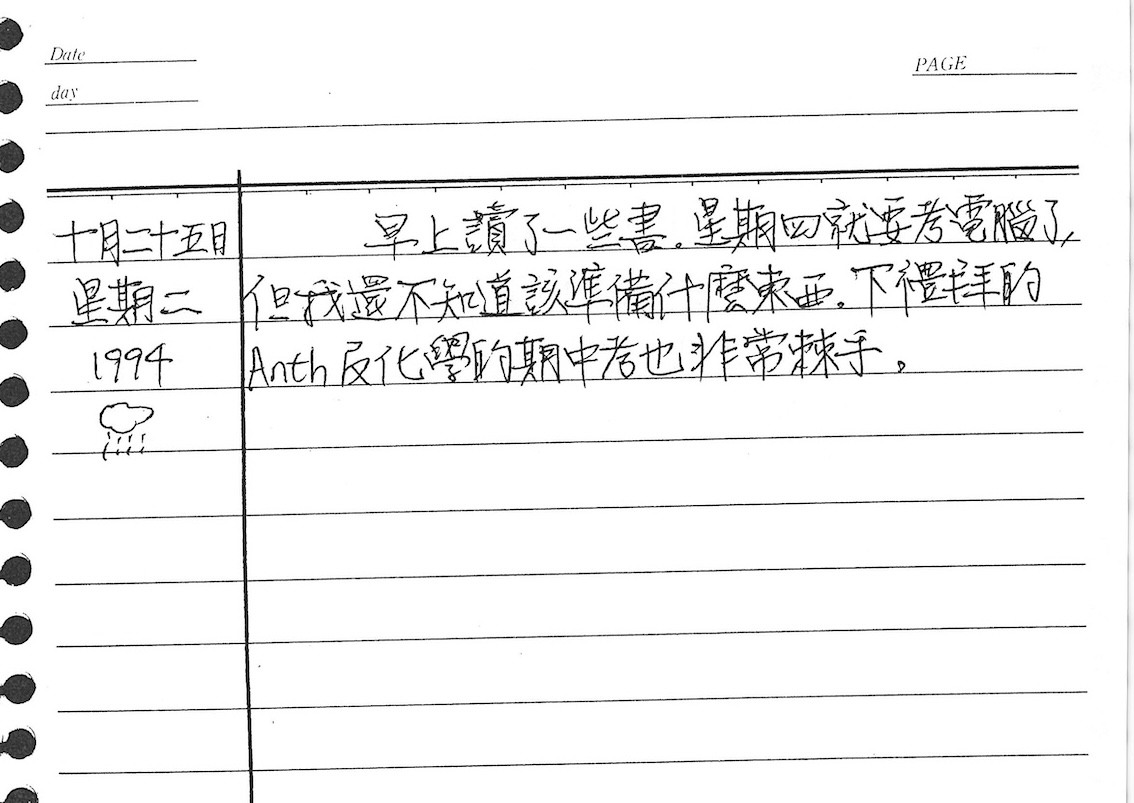 Date
day
PAGE
十月二十五日
星期二
1994
早上讀了一些書.星期四就要考電腦了,
但我還不知道該準備什麼東西.下禮拜的
Anth反化學的期中考也非常棘手。